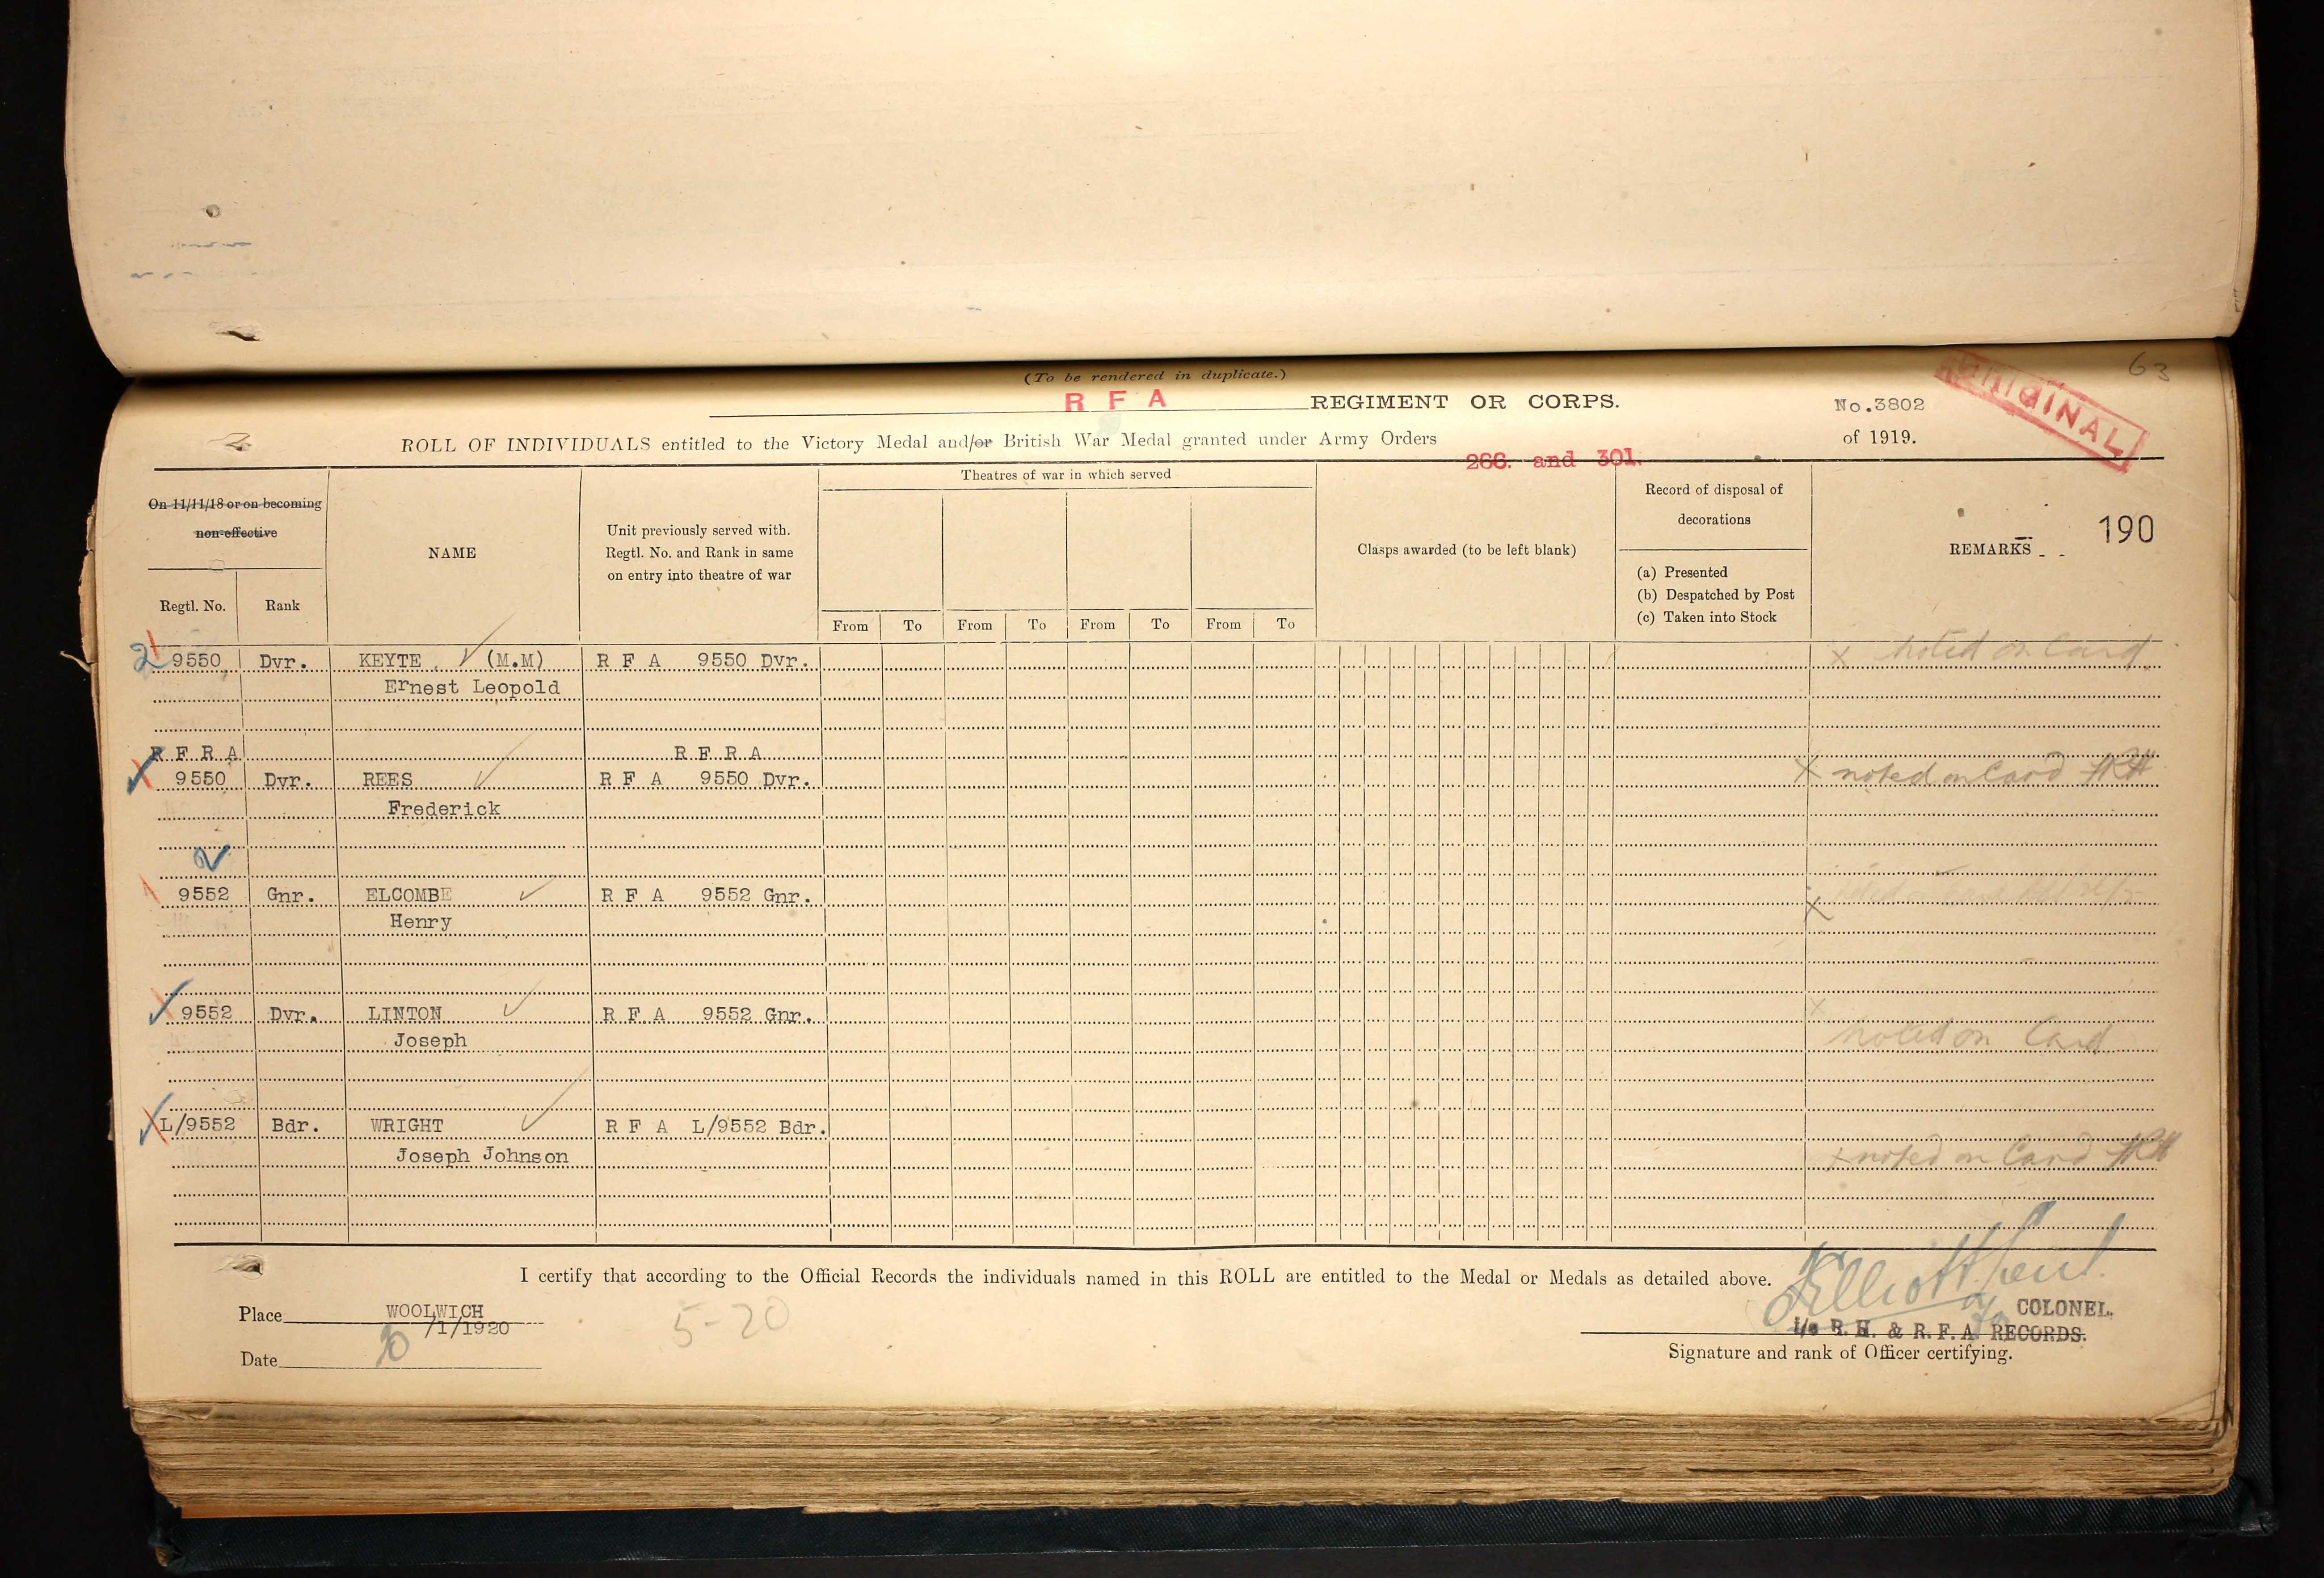 (To be rendered in duplicate.)
63
R F A REGIMENT OR CORPS.
No.3802
ORIGINAL
ROLL OF INDIVIDUALS entitled to the Victory Medal and/or British War Medal granted under Army Orders of 1919.
266. and 301.
On 11/11/18 or on becoming non-effective
Regtl. No. Rank
NAME
Unit previously served with.
Regtl. No. and Rank in same
on entry into theatre of war
Theatres of war in which served
From To From To From To From To
Clasps awarded (to be left blank)
Record of disposal of
decorations
(a) Presented
(b) Despatched by Post
(c) Taken into Stock
REMARKS
190
2 9550 Dvr. KEYTE (M.M) R F A 9550 Dvr. x noted on Card
Ernest Leopold
R F R A R F R A
9550 Dvr. REES R F A 9550 Dvr. X noted on Card
Frederick
2
9552 Gnr. ELCOMBE R F A 9552 Gnr. x
Henry
9552 Dvr. LINTON R F A 9552 Gnr. x
Joseph noted on Card
L/9552 Bdr. WRIGHT R F A L/9552 Bdr.
Joseph Johnson x noted on Card
I certify that according to the Official Records the individuals named in this ROLL are entitled to the Medal or Medals as detailed above.
Place WOOLWICH
30/1/1920
Date
5-20
COLONEL.
i/c R.H. & R.F.A. RECORDS.
Signature and rank of Officer certifying.